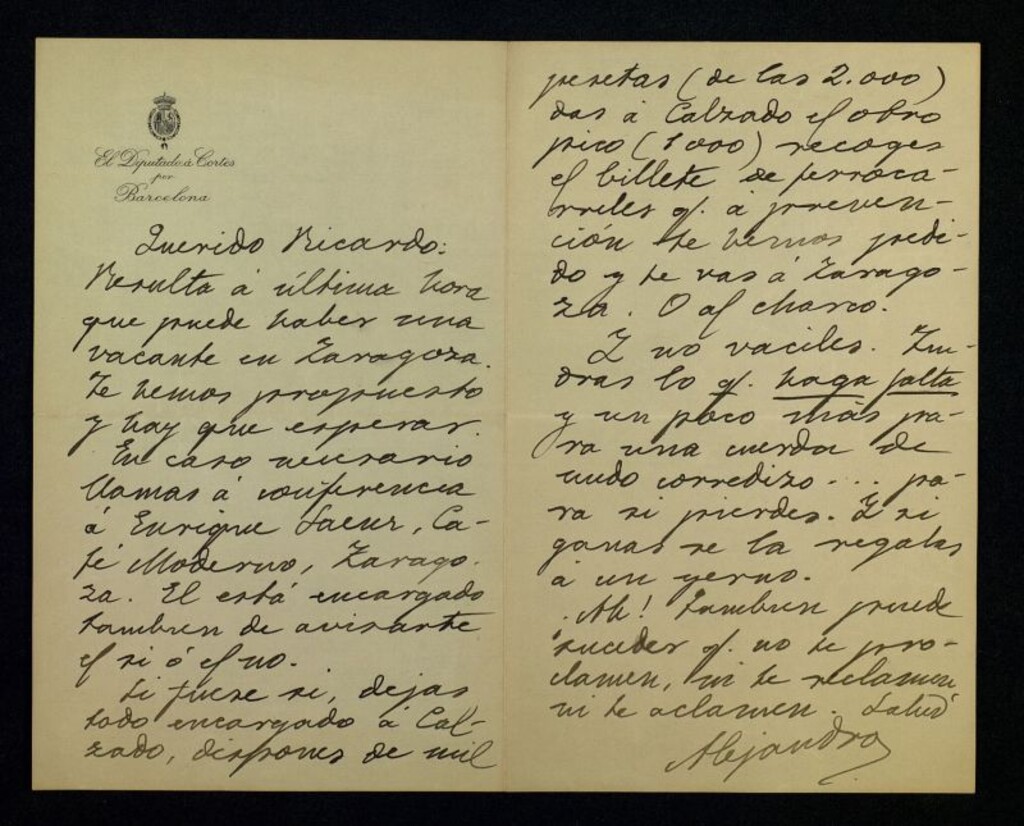 El Diputado á Cortes
por
Barcelona
Querido Ricardo:
Resulta á última hora
que puede haber una
vacante en Zaragoza.
Te hemos propuesto
y hay que esperar.
En caso necesario
llamas á conferencia
á Enrique Saenz, Ca-
fé Moderno, Zarago-
za. El está encargado
tambien de avisarte
el si ó el no.
Si fuese si, dejas
todo encargado á Cal-
zado, dispones de mil
pesetas (de las 2.000)
das á Calzado el otro
pico (1000) recoges
el billete de ferroca-
rriles q. á preven-
ción te hemos pedi-
do y te vas á Zarago-
za. O al charco.
Y no vaciles. Ten-
dras lo q. haga falta
y un poco más pa-
ra una cuerda de
nudo corredizo... pa-
ra si pierdes. Y si
ganas se la regalas
á un yerno.
Ah! Tambien puede
suceder q. no te pro-
clamen, ni te reclamen
ni te aclamen. Salud
Alejandro